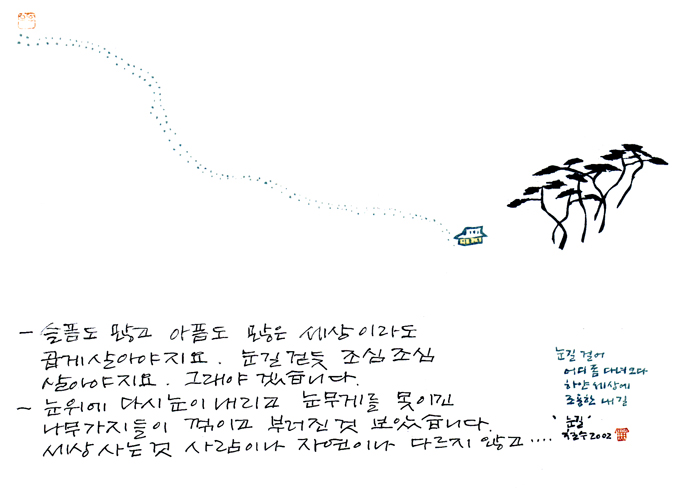 - 슬픔도 많고 아픔도 많은 세상이라도
곱게살아야지요. 눈길 걷듯 조심조심
살아야지요. 그래야 겠습니다.
~ 눈위에 다시눈이내리고 눈무게를 못이긴
나무가지들이 꺾이고 부러진것 보았습니다.
세상 사는것 사람이나 자연이나 다르지 않고····
눈길 걸어
어디쯤 다녀오다
하얀 세상에
조용한 내길
'눈길'
2002